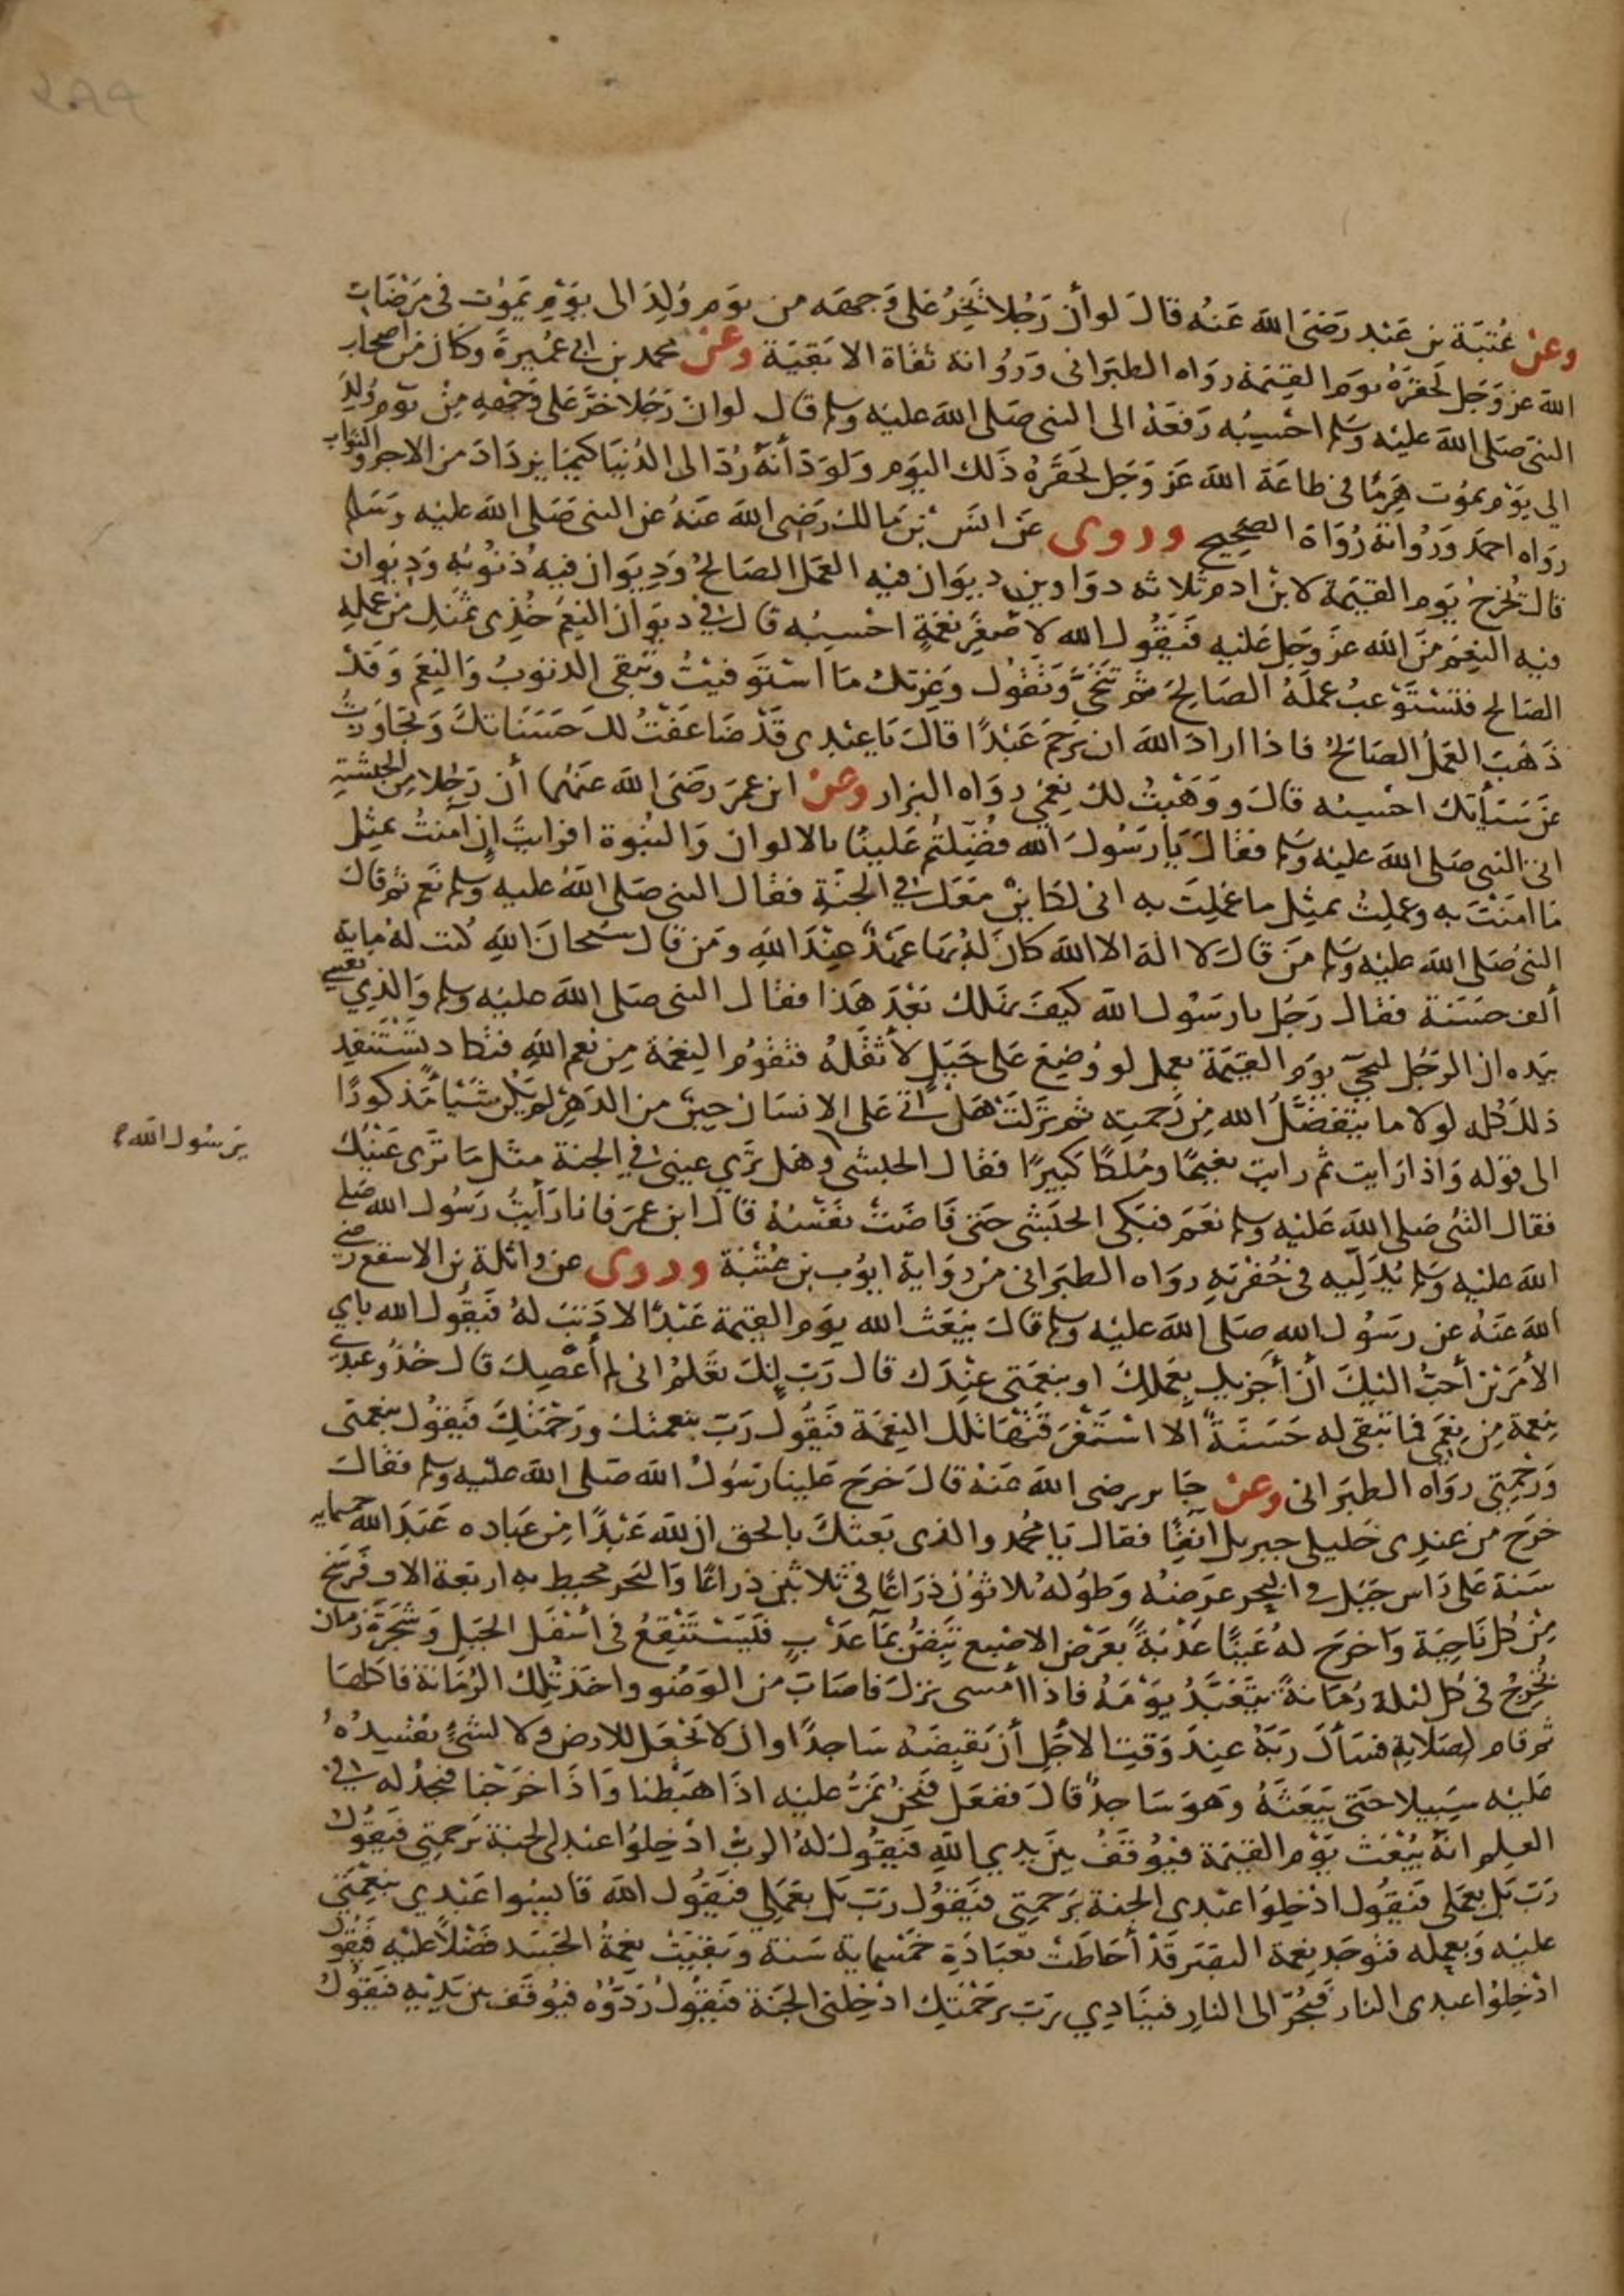 وعن عُتبَة بن عَبْد رَضىَ الله عَنهُ قالَ لو أن رَجُلا يَخِرُّ عَلى وَجهه من يوَم وُلِدَ الى يوَمٍ يَموُت فى مَرْضَات
الله عز وَجَل لَحقرَهُ يوَم القيَمة رواه الطبَرانى وَرُوَاته ثقاة الا بَقيَة وعَن محمد بن ابى عُمَيرةَ وكَان من اصحاب
النبى صَلى الله عليْه وَسَلم احسِبُه رَفعَهُ الى النبى صَلى الله عليْه وسلم قال لو ان رَجُلا خَرَّ عَلى وَجْهِهِ مِنْ يَوم وُلِدَ
الى يَوْم يموُت هَرِمًا فى طاعَة الله عَز وَجَل لَحَقَرَهُ ذَلك اليوَم وَلَوَدَّ أنهُ رُدَّ الى الدُنيَا كيمَا يزدَادَ من الاجر والثواب
رواه احمَد وَرُوَاتهُ رُوَاة الصَحِيح وروى عَن انَس بن مَالك رَضى الله عَنهُ عَن النبى صَلى الله عليْه وَسَلم
قالَ يُخرجُ يَوم القيَمة لابْن ادم ثلاثه دوَاوين ديوَان فيه العمَل الصَالحُ وَديوَان فيهِ ذنوُبُه وَديوان
فيه النِعَم مَن الله عَز وجَل عَليْه فيَقُول الله لاصْغَرِ نِعْمَةٍ احْسِبُه قال فى ديوَان النِعَم خُذِى ثمَنكِ مَن عَملِهِ
الصَالح فتَسْتَوْعبُ عمَلَهُ الصَالحَ ثم تَنَحَّى وَتقُول وَعِزتك مَا اسْتَوفَيْتُ وَتبقى الذنوُبُ وَالنِعَم وَقدْ
ذَهَبَ العَمَلُ الصَالحُ فاذا ارادَ الله ان يَرْحَمَ عَبْدًا قالَ يَا عبْدى قَدْ ضَاعَفتُ لكَ حَسَنَاتكَ وَتجاوَزتُ
عَن سَيآتك احْسِبُه قالَ وَوَهَبْتُ لكَ نِعَمى رواه البزار وعَن ابن عمَرَ رَضىَ الله عَنهُما أن رَجُلا من الحبشة
اتى النبى صَلى الله عليْه وسَلم فقالَ يَا رَسُولَ الله فُضِّلتُم عَلينَا بالالوان وَالنبُوة افرايتَ إن آمَنتُ بمثِل
مَا امَنتَ به وعَملتُ بمثِل ما عَملِتَ به انى لكَاينٌ مَعَك فى الجنَة فقال النبى صَلى الله عليه وسلم نَعم ثم قالَ
النبى صَلى الله عليْه وسَلم مَن قالَ لا الهَ الا الله كانَ لهُ بهَا عَهْدٌ عِنْدَ اللهِ ومَن قال سُبحَانَ اللهِ كُتبَ لهُ مايَة
ألف حسَنة فقال رَجُل يا رسُولَ الله كيفَ نهلك بَعْدَ هَذا فقال النبى صَلى الله عليْه وسلم وَالذِى نفسِى
بيَده ان الرَجُل ليجئ يوَم القيَمَة بعمل لو وُضِعَ عَلى جَبَل لاثْقَلهُ فتَقوُم النِعْمة مِن نِعَم اللهِ فتكاد تَسْتَنفِد
ذلكَ كُله لولا ما يتَفَضَّلُ الله مِن رَحمتِه ثم نزَلَتْ هَلْ اتَى عَلى الانسَان حينٌ من الدَهِر لم يَكُن شَيئا مَّذكورًا
الى قوْله وَاذا رَايت ثم رايت نعيمًا ومُلكًا كبيرًا فقال الحبشى وهَل تَرى عينى فى الجنة مثل مَا تَرى عَيْنُكَ
فقال النبى صَلى الله عَليْه وسلم نعَم فبَكى الحبَشى حتى فَاضَتْ نفَسُهُ قالَ ابن عمَر فانا رَأيتُ رَسُول الله صَلى
الله عليْه وسَلم يُدَلِّيه فى حُفرَتِه روَاه الطبَرانى من روَاية ايوُب بن عُتبَة وروى عن واثلة بن الاسقع رَضى
الله عَنهُ عن رسُول الله صَلى الله عليْه وسلم قالَ يَبْعَث الله يوَم القيَمة عَبْدًا لا ذَنبَ لهُ فيَقُول الله باى
الأمْرَيْن أحَبُّ اليْكَ أن أجزيك بِعمَلِكَ او بنِعْمَتى عِنْدَك قال رَب إنكَ تَعْلمُ انى لم أعْصِكَ قال خُذُو عبدى
بنِعْمة مِن نِعَمى فما تَبقى له حَسَنةٌ الا اسْتَغْرَقَتْهَا تلك النِعْمَة فَيَقُول رَب بنعمتك ورَحْمَتكَ فَيَقوُل بنِعمَتى
وَرَحْمتى روَاه الطبَرانى وعَن جَابر رضى الله عَنهُ قالَ خرَج عَلينا رَسُولُ الله صَلى الله عليْه وسلم فقالَ
خرَج من عندى خليلى جبريل انفًا فقالَ يَا مُحَمد والذى بَعثكَ بالحق ان للهِ عَبْدًا مِن عبَاده عَبَدَ الله خمسمايه
سَنة عَلى رَاس جَبَل فى البحر عرَضهُ وَطوُلهُ ثلاثوُن ذرَاعًا فى ثلاثينَ ذراعًا وَالبحر محيط به اربَعة الاف فَرسَخ
مِنْ كل نَاحِيَة وَاخرَج لهُ عَينًا عَذْبَةً بعَرْض الاصْبع تبِضُّ بمَآ عَذْبٍ فيَسْتَنْقِعُ فى اسْفَل الجبَل وَشَجَرَة رُمان
تُخرِجُ فى كُل ليْلة رُمَّانةً يتَعَبَّدُ يوْمَهُ فاذا امْسى نزلَ فاصَابَ من الوَضُوو واخذ تلِكَ الرُمَّانَة فاكلهَا
ثم قام لِصَلاتهِ فسَأل رَبَّهُ عِندَ وَقتِ الاجَل أن يقبضَهُ سَاجدًا وان لا يَجْعَل للارض ولا لشئٍ يُفسِدُهُ
عَليْه سَبِيلا حَتى يَبعَثهُ وَهوَ سَاجدٌ قالَ ففعَل فنَحْن نَمرُّ عليْه اذَا هبَطْنا وَاذَا خرَجْنا فنجدُ له فى
العِلم انهُ يُبْعَث يَوْم القيَمة فيُوقَفُ بين يدى اللهِ فيَقُول لهُ الربّ ادْخِلوُا عبدى الجنة برَحمتِى فيَقوُل
رَبّ بَل بعمَلى فيَقُول ادْخِلوُا عبْدى الجنة برَحمتِى فيَقوُل رَبّ بَل بعَمَلى فيَقُول الله قايسُوا عَبْدى بنِعمَتى
عليْه وَبعمِله فتوُجَد نِعمة البصَر قَدْ أحَاطَتْ بعبَادَةِ خَمْسماية سَنة وَبَقِيَتْ نِعْمةُ الجسَد فَضْلاً عَليْه فَيقُول
ادْخِلُوا عبدى النار فَيُجَرّ الى النارِ فيُنَادى رَب برَحْمَتِك ادْخِلنى الجَنة فَيَقُولُ رُدّوُه فيُوقَف بين يَدَيْه فَيقُولُ